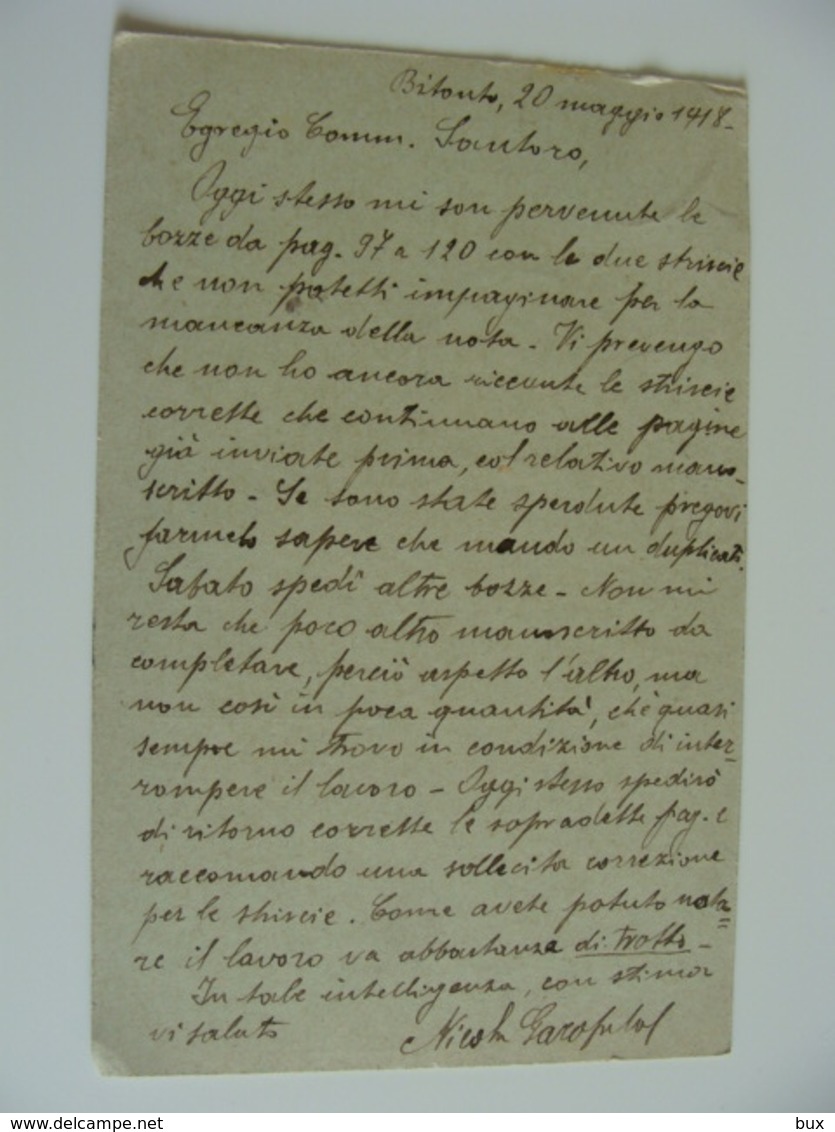 Bitonto, 20 maggio 1918-
Egregio Comm. Santoro,
Oggi stesso mi son pervenute le
bozze da pag. 97 a 120 con le due striscie
che non potetti impaginare per la
mancanza della nota - Vi prevengo
che non ho ancora riccevute le striscie
corrette che continuano alle pagine
già inviate prima, col relativo mano-
scritto - Se sono state sperdute pregovi
farmelo sapere che mando un duplicati.
Sabato spedì altre bozze - Non mi
resta che poco altro manoscritto da
completare, perciò aspetto l'altro, ma
non così in poca quantità, chè quasi
sempre mi trovo in condizione di inter=
rompere il lavoro - Oggi stesso spedirò
di ritorno corrette le sopradette pag. e
raccomando una sollecita correzione
per le striscie. Come avete potuto nota=
re il lavoro va abbastanza di trotto -
In tale intelligenza, con stima
vi saluto Nicola Garofalo
delcampe.net
bux